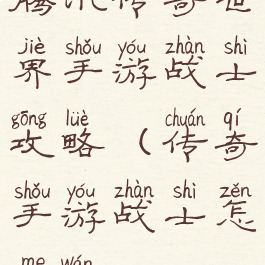 腾讯传奇世
jiè shǒu yóu zhàn shì
界手游战士
gōng lüè chuán qí
攻略（传奇
shǒu yóu zhàn shì zěn
手游战士怎
me wán